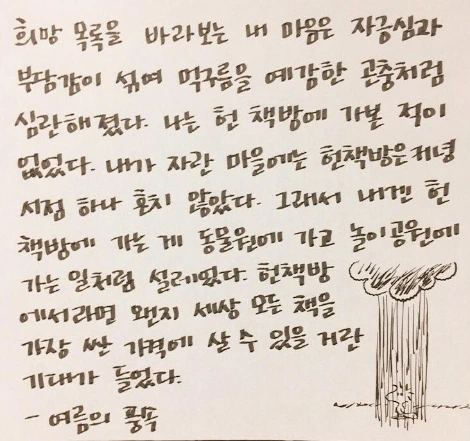 희망 목록을 바라보는 내 마음은 자긍심과
부담감이 섞여 먹구름을 예감한 곤충처럼
심란해졌다. 나는 헌 책방에 가본 적이
없었다. 내가 자란 마을에는 헌책방은커녕
서점 하나 흔치 않았다. 그래서 내겐 헌
책방에 가는 게 동물원에 가고 놀이공원에
가는 일처럼 설레었다. 헌책방
에서라면 왠지 세상 모든 책을
가장 싼 가격에 살 수 있을 거란
기대가 들었다.
- 여름의 풍속